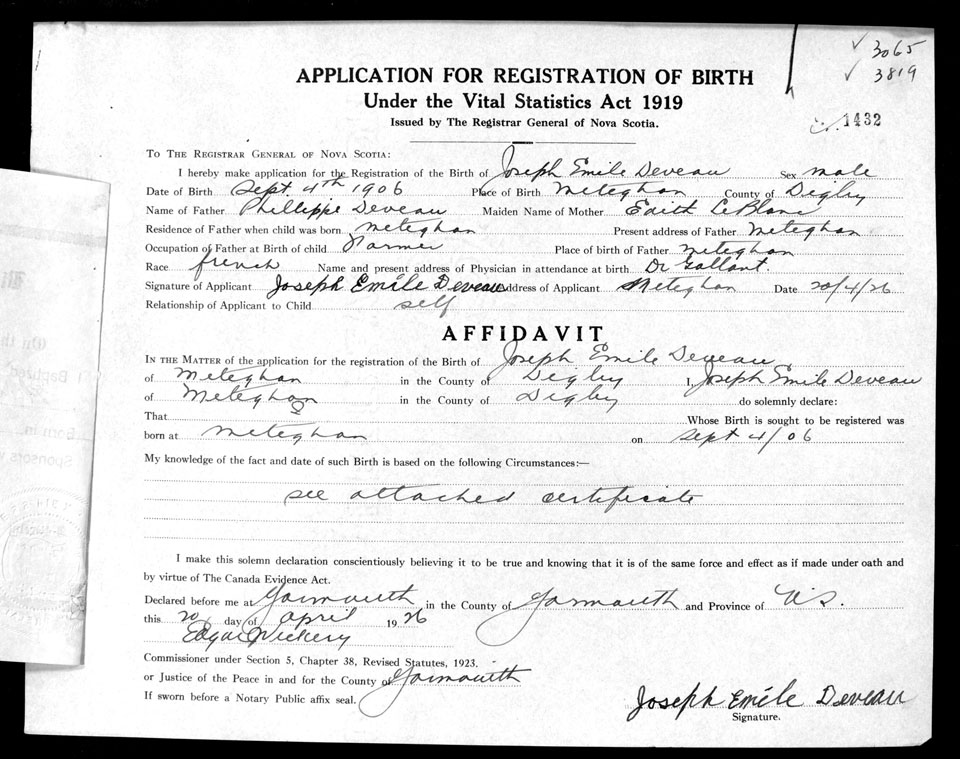 3065
3819
APPLICATION FOR REGISTRATION OF BIRTH
Under the Vital Statistics Act 1919
Issued by The Registrar General of Nova Scotia.
1432
TO THE REGISTRAR GENERAL OF NOVA SCOTIA:
I hereby make application for the Registration of the Birth of Joseph Emile Deveau Sex male
Date of Birth Sept. 4th 1906 Place of Birth Meteghan County of Digby
Name of Father Phillippe Deveau Maiden Name of Mother Edith LeBlanc
Residence of Father when child was born meteghan Present address of Father Meteghan
Occupation of Father at Birth of child Farmer Place of birth of Father Meteghan
Race french Name and present address of Physician in attendance at birth Dr Gallant.
Signature of Applicant Joseph Emile Deveau Address of Applicant Meteghan Date 20/4/26
Relationship of Applicant to Child self
AFFIDAVIT
IN THE MATTER of the application for the registration of the Birth of Joseph Emile Deveau
of Meteghan in the County of Digby I, Joseph Emile Deveau
of Meteghan in the County of Digby do solemnly declare:
That Whose Birth is sought to be registered was
born at meteghan on Sept 4/06
My knowledge of the fact and date of such Birth is based on the following Circumstances:—
see attached certificate
I make this solemn declaration conscientiously believing it to be true and knowing that it is of the same force and effect as if made under oath and
by virtue of The Canada Evidence Act.
Declared before me at Yarmouth in the County of Yarmouth and Province of N.S.
this 20 day of April 1926
Edgar Vickery
Commissioner under Section 5, Chapter 38, Revised Statutes, 1923.
or Justice of the Peace in and for the County of Yarmouth
If sworn before a Notary Public affix seal.
Joseph Emile Deveau
Signature.